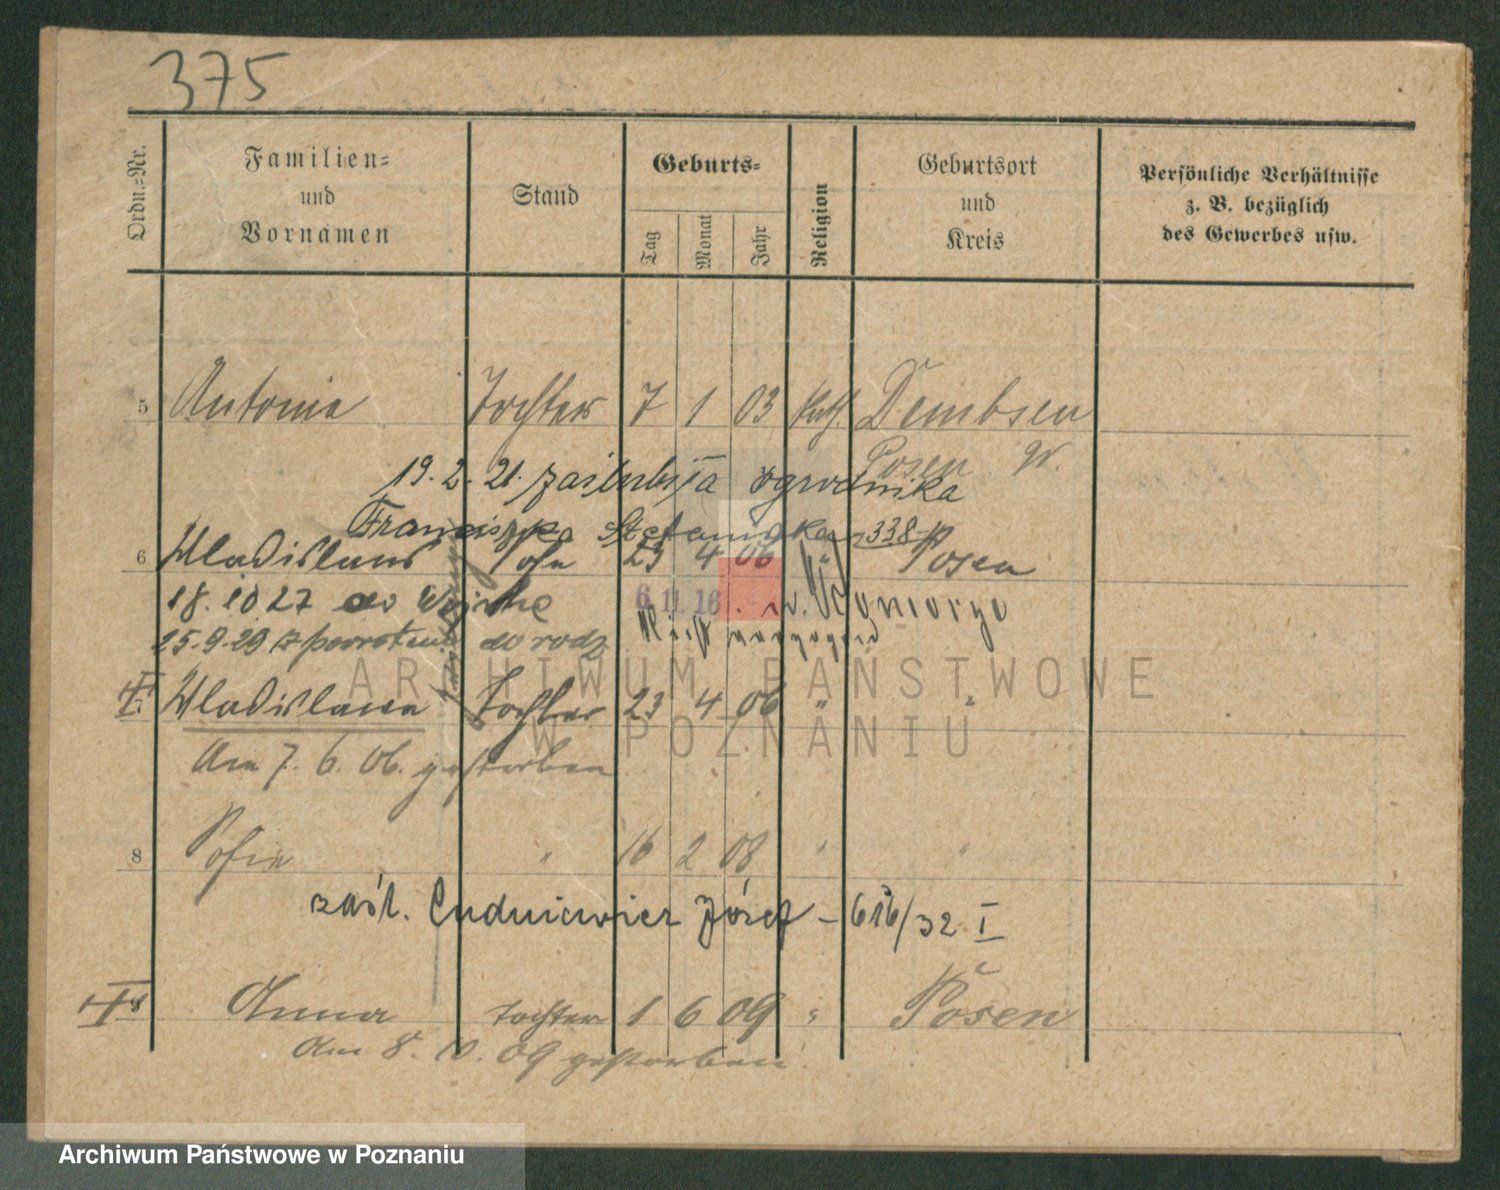 375
Ordn.-Nr.
Familien-
und
Vornamen
Stand
Geburts-
Tag
Monat
Jahr
Religion
Geburtsort
und
Kreis
Persönliche Verhältnisse
z. B. bezüglich
des Gewerbes usw.
5 Antonie Tochter 7 1 03 kath. Dembsen
Posen W.
19.2.21. zaślubiła ogrodnika
Franciszka 338
6 Wladislaus Sohn 23 4 06 " Posen
18.10 27 do 6.11.16
25.9.29 z powrotem do rodz.
7 Wladislawa Tochter 23 4 06 " "
Am 7. 6. 06. gestorben
8 Sofie " 16 2 08 " "
zaśl. Józef – 616/32 I
Anna Tochter 1 6 09 " Posen
Am 8. 10. 09 gestorben
ARCHIWUM PAŃSTWOWE
W POZNANIU
Archiwum Państwowe w Poznaniu